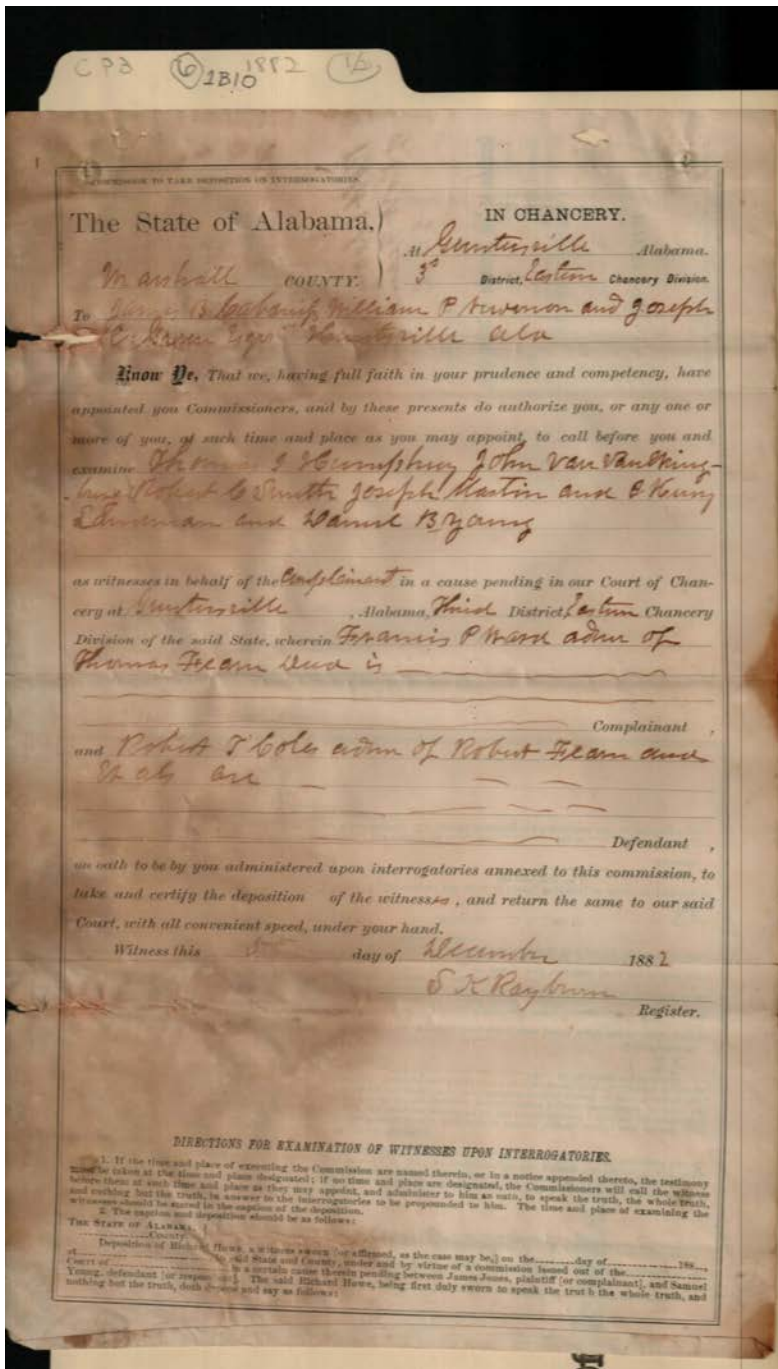 CP3 6 1B10 1882 1/2
COMMISSION TO TAKE DEPOSITION ON INTERROGATORIES.
The State of Alabama,
IN CHANCERY.
At Guntersville Alabama.
Marshall COUNTY.
3d District, Eastern Chancery Division.
To James B. Cabaniss William P and Joseph
Huntsville Ala
Know Ye, That we, having full faith in your prudence and competency, have
appointed you Commissioners, and by these presents do authorize you, or any one or
more of you, at such time and place as you may appoint, to call before you and
examine Thomas Humphrey John Van
Robert C Smith Joseph Martin and
and Daniel B Young
as witnesses in behalf of the Complainant in a cause pending in our Court of Chan-
cery at Guntersville, Alabama, Third District, Eastern Chancery
Division of the said State, wherein Francis P Ward admr of
Thomas Fearn decd is
Complainant ,
and Robert T Coles admr of Robert Fearn
et als are
Defendant ,
on oath to be by you administered upon interrogatories annexed to this commission, to
take and certify the deposition of the witnesses, and return the same to our said
Court, with all convenient speed, under your hand.
Witness this day of December 1882
S K Rayburn
Register.
DIRECTIONS FOR EXAMINATION OF WITNESSES UPON INTERROGATORIES.
1. If the time and place of executing the Commission are named therein, or in a notice appended thereto, the testimony
must be taken at the time and place designated; if no time and place are designated, the Commissioners will call the witness
before them at such time and place as they may appoint, and administer to him an oath, to speak the truth, the whole truth,
and nothing but the truth, in answer to the interrogatories to be propounded to him. The time and place of examining the
witnesses should be stated in the caption of the deposition.
2. The caption and deposition should be as follows:
THE STATE OF ALABAMA,
County.
Deposition of Richard Howe, a witness sworn [or affirmed, as the case may be,] on the day of 188
at in said State and County, under and by virtue of a commission issued out of the
Court of in a certain cause therein pending between James Jones, plaintiff [or complainant], and Samuel
Young, defendant [or respondent]. The said Richard Howe, being first duly sworn to speak the truth the whole truth, and
nothing but the truth, doth depose and say as follows: